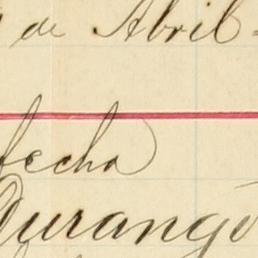 de Abril
fecha
Durango